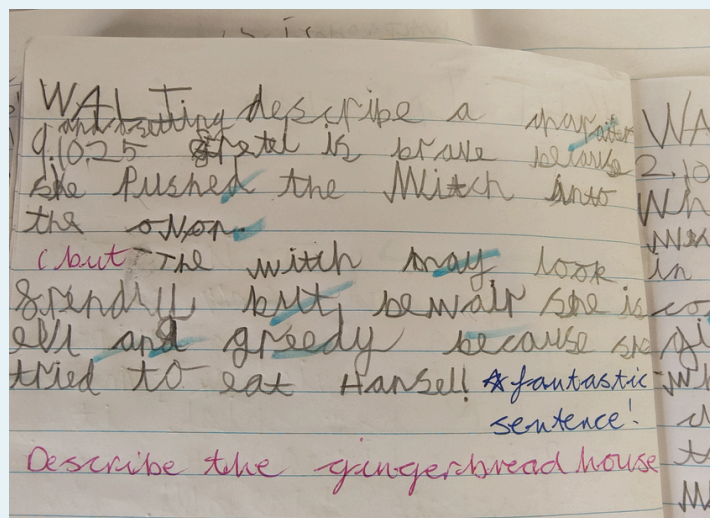 WALT describe a
and setting
9.10.25 Gretel is brave because
she Pushed the Witch into
the oNon.
(but The witch may look in
frendlu but bewair she is co
evil and greedy because she gi
tried to eat Hansel! ☆fantastic
sentence!
Describe the gingerbread house
WA
2.10
Wh